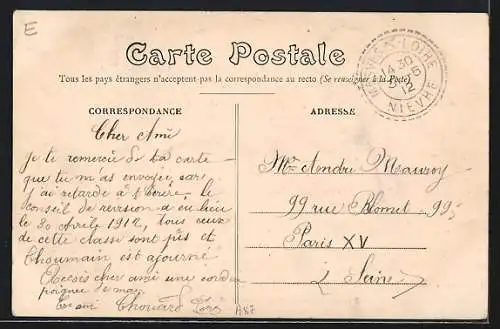 E
Carte Postale
Tous les pays étrangers n'acceptent pas la correspondance au recto (Se renseigner à la Poste)
LOIRE
14 30
12
NIEVRE
CORRESPONDANCE
Cher Ami
je te remercie de ta carte
que tu m'as envoyer
j'ai retardé à le
conseil de revision a eu lieu
le 30 Avrile 1912, tous ceux
de cette classe sont pris et
Choumain est ajourné
cher ami une
poignee de main
ton ami Chouard
A87
ADRESSE
Mr Andre Mauroy
99 rue Blomet 99
Paris XV
(Seine)